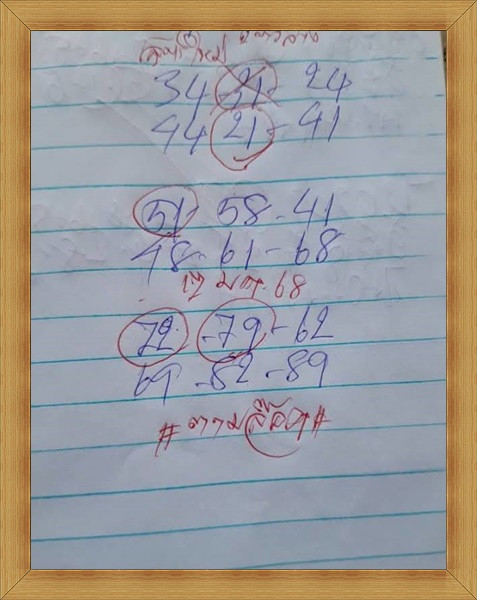 34 31 - 24
44 21 - 41
51 - 58 - 41
48 - 61 - 68
มค. 68
72 - 79 - 62
69 - 82 - 89
#ตาม